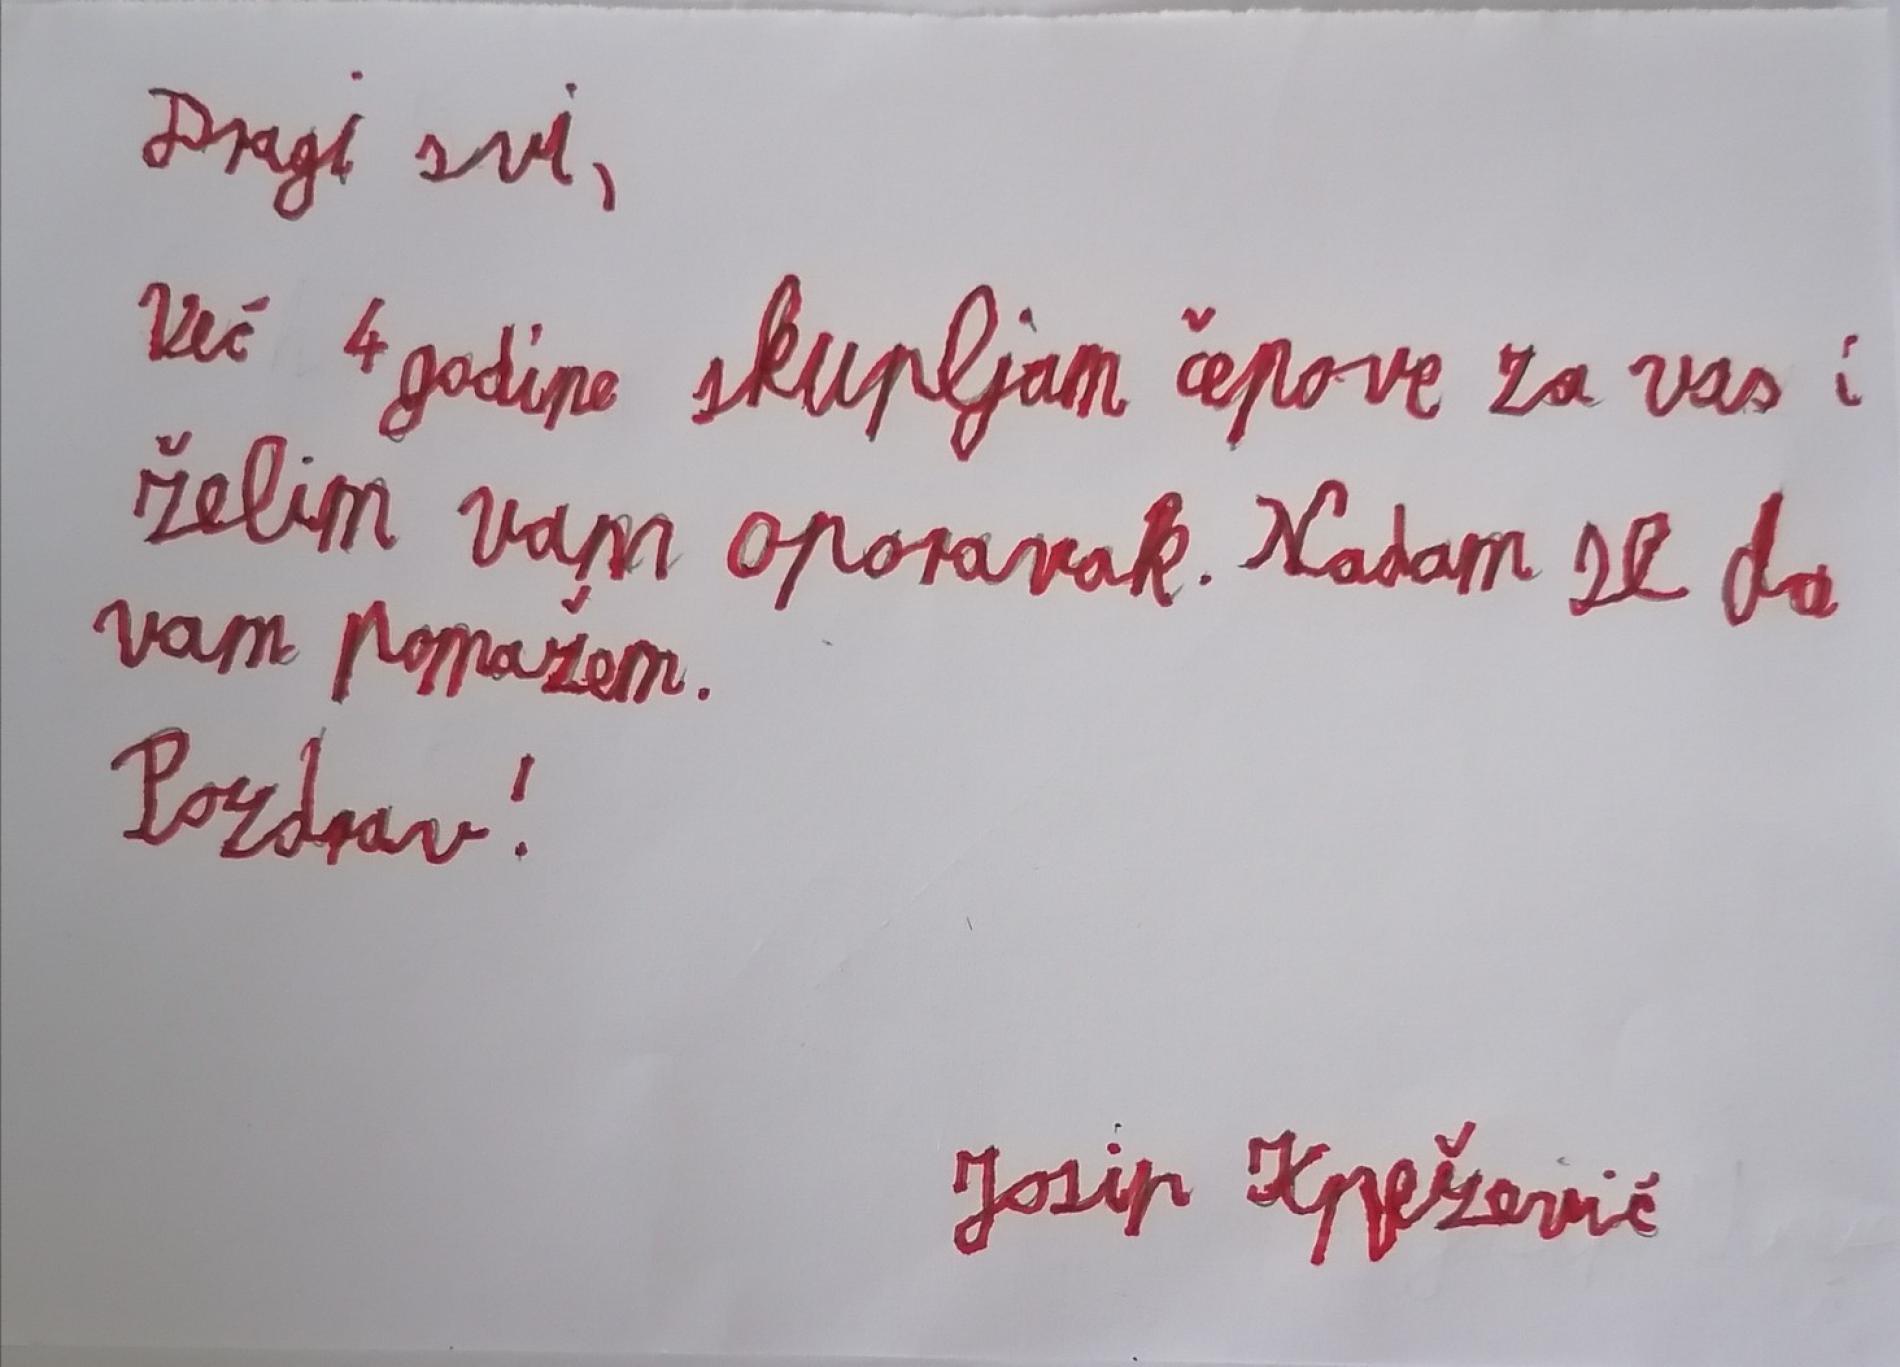 Dragi svi,
Već 4 godine skupljam čepove za vas i
želim vam oporavak. Nadam se da
vam pomažem.
Pozdrav!
Josip Knežević